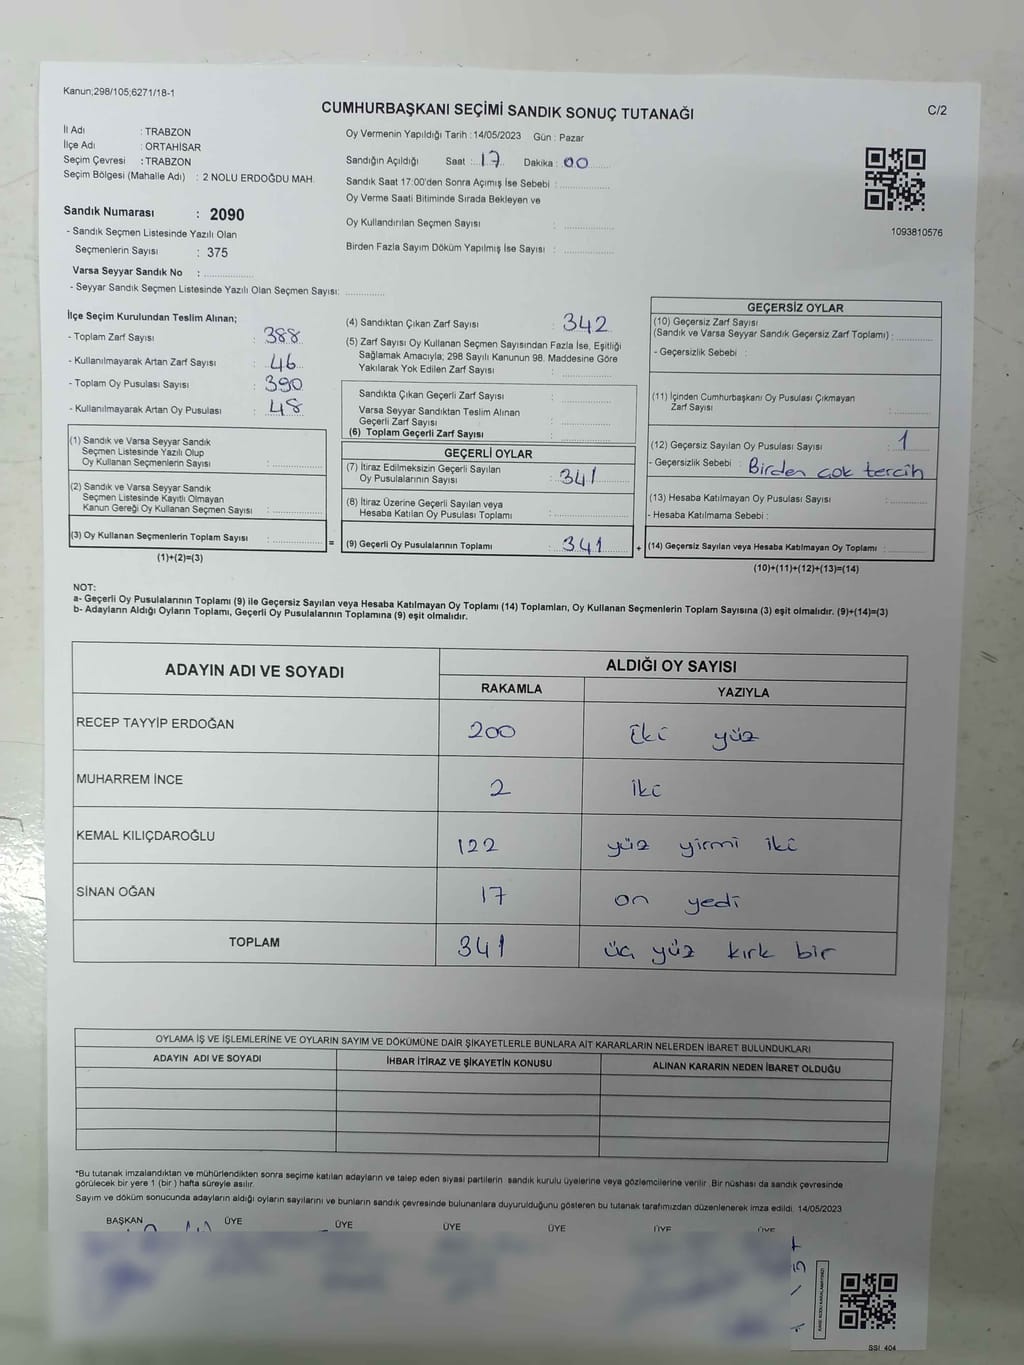 Kanun;298/105;6271/18-1
CUMHURBAŞKANI SEÇİMİ SANDIK SONUÇ TUTANAĞI
C/2
İl Adı : TRABZON
İlçe Adı : ORTAHİSAR
Seçim Çevresi : TRABZON
Seçim Bölgesi (Mahalle Adı) : 2 NOLU ERDOĞDU MAH.
Sandık Numarası : 2090
- Sandık Seçmen Listesinde Yazılı Olan
Seçmenlerin Sayısı : 375
Varsa Seyyar Sandık No :
- Seyyar Sandık Seçmen Listesinde Yazılı Olan Seçmen Sayısı:
Oy Vermenin Yapıldığı Tarih :14/05/2023 Gün : Pazar
Sandığın Açıldığı Saat : 17 Dakika : 00
Sandık Saat 17:00'den Sonra Açımış İse Sebebi :
Oy Verme Saati Bitiminde Sırada Bekleyen ve
Oy Kullandırılan Seçmen Sayısı :
Birden Fazla Sayım Döküm Yapılmış İse Sayısı :
1093810576
İlçe Seçim Kurulundan Teslim Alınan;
- Toplam Zarf Sayısı : 388
- Kullanılmayarak Artan Zarf Sayısı : 46
- Toplam Oy Pusulası Sayısı : 390
- Kullanılmayarak Artan Oy Pusulası : 48
(1) Sandık ve Varsa Seyyar Sandık
Seçmen Listesinde Yazılı Olup
Oy Kullanan Seçmenlerin Sayısı :
(2) Sandık ve Varsa Seyyar Sandık
Seçmen Listesinde Kayıtlı Olmayan
Kanun Gereği Oy Kullanan Seçmen Sayısı :
(3) Oy Kullanan Seçmenlerin Toplam Sayısı : =
(1)+(2)=(3)
(4) Sandıktan Çıkan Zarf Sayısı : 342
(5) Zarf Sayısı Oy Kullanan Seçmen Sayısından Fazla İse, Eşitliği
Sağlamak Amacıyla; 298 Sayılı Kanunun 98. Maddesine Göre
Yakılarak Yok Edilen Zarf Sayısı :
Sandıkta Çıkan Geçerli Zarf Sayısı :
Varsa Seyyar Sandıktan Teslim Alınan
Geçerli Zarf Sayısı :
(6) Toplam Geçerli Zarf Sayısı :
GEÇERLİ OYLAR
(7) İtiraz Edilmeksizin Geçerli Sayılan
Oy Pusulalarının Sayısı : 341
(8) İtiraz Üzerine Geçerli Sayılan veya
Hesaba Katılan Oy Pusulası Toplamı :
(9) Geçerli Oy Pusulalarının Toplamı : 341 +
GEÇERSİZ OYLAR
(10) Geçersiz Zarf Sayısı
(Sandık ve Varsa Seyyar Sandık Geçersiz Zarf Toplamı) :
- Geçersizlik Sebebi :
(11) İçinden Cumhurbaşkanı Oy Pusulası Çıkmayan
Zarf Sayısı :
(12) Geçersiz Sayılan Oy Pusulası Sayısı : 1
- Geçersizlik Sebebi : Birden çok tercih
(13) Hesaba Katılmayan Oy Pusulası Sayısı :
- Hesaba Katılmama Sebebi :
(14) Geçersiz Sayılan veya Hesaba Katılmayan Oy Toplamı :
(10)+(11)+(12)+(13)=(14)
NOT:
a- Geçerli Oy Pusulalarının Toplamı (9) ile Geçersiz Sayılan veya Hesaba Katılmayan Oy Toplamı (14) Toplamları, Oy Kullanan Seçmenlerin Toplam Sayısına (3) eşit olmalıdır. (9)+(14)=(3)
b- Adayların Aldığı Oyların Toplamı, Geçerli Oy Pusulalarının Toplamına (9) eşit olmalıdır.
ADAYIN ADI VE SOYADI ALDIĞI OY SAYISI
RAKAMLA YAZIYLA
RECEP TAYYİP ERDOĞAN 200 İki yüz
MUHARREM İNCE 2 iki
KEMAL KILIÇDAROĞLU 122 yüz yirmi iki
SİNAN OĞAN 17 on yedi
TOPLAM 341 üç yüz kırk bir
OYLAMA İŞ VE İŞLEMLERİNE VE OYLARIN SAYIM VE DÖKÜMÜNE DAİR ŞİKAYETLERLE BUNLARA AİT KARARLARIN NELERDEN İBARET BULUNDUKLARI
ADAYIN ADI VE SOYADI İHBAR İTİRAZ VE ŞİKAYETİN KONUSU ALINAN KARARIN NEDEN İBARET OLDUĞU
*Bu tutanak imzalandıktan ve mühürlendikten sonra seçime katılan adayların ve talep eden siyasi partilerin sandık kurulu üyelerine veya gözlemcilerine verilir. Bir nüshası da sandık çevresinde
görülecek bir yere 1 (bir ) hafta süreyle asılır.
Sayım ve döküm sonucunda adayların aldığı oyların sayılarını ve bunların sandık çevresinde bulunanlara duyurulduğunu gösteren bu tutanak tarafımızdan düzenlenerek imza edildi. 14/05/2023
BAŞKAN ÜYE ÜYE ÜYE ÜYE ÜYE ÜYE
SSI 404